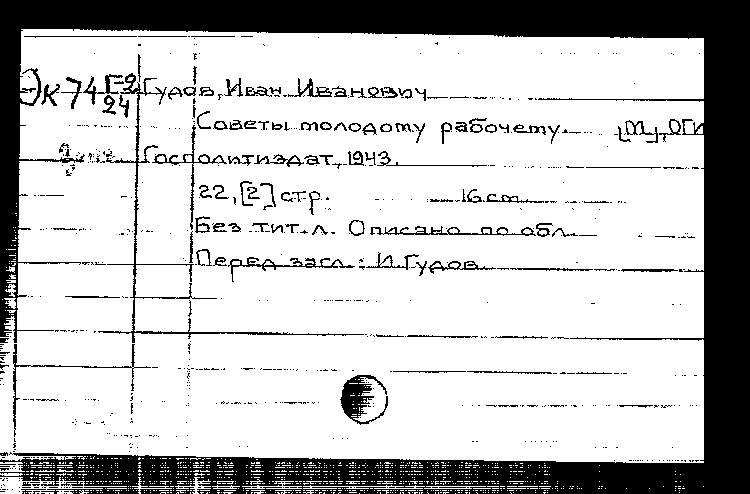 Эк 74 Г-2 Гудов, Иван Иванович
24
Советы молодому рабочему. [М.], ОГИ
2 экз. Госполитиздат, 1943.
22,[2] стр. 16 cm.
Без тит.л. Описано по обл.
Перед загл.: И.Гудов